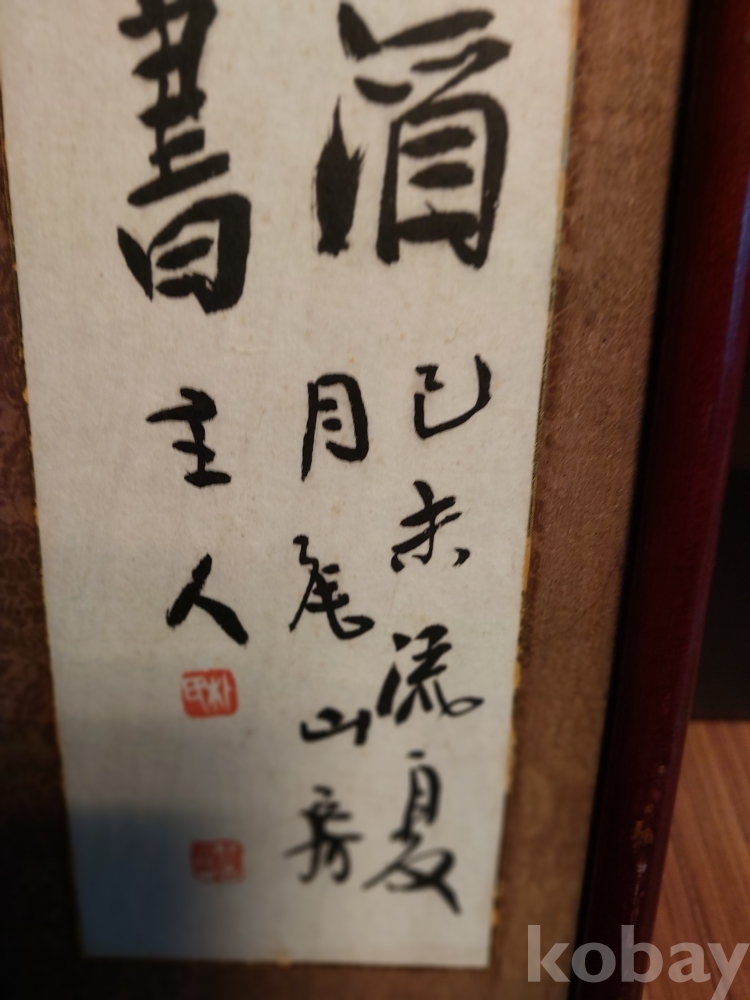 己未流夏
月尾山房
書
主人
kobay